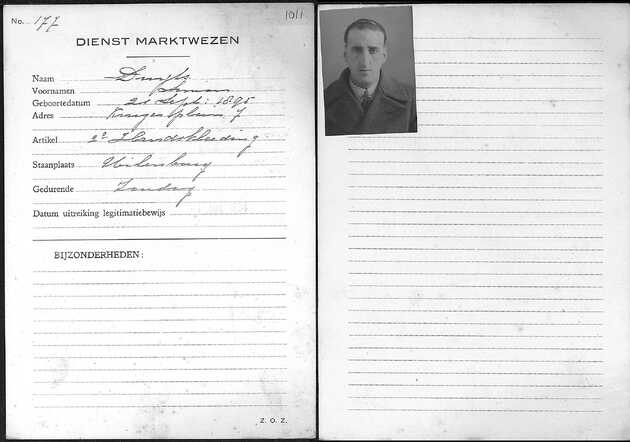 No. 177
10/1
DIENST MARKTWEZEN
Naam
Voornamen
Geboortedatum 21 Sept: 1895
Adres Krugerplein 7
Artikel 2e Handskleeding
Staanplaats Uilenburg
Gedurende Zondag
Datum uitreiking legitimatiebewijs
BIJZONDERHEDEN:
Z. O. Z.